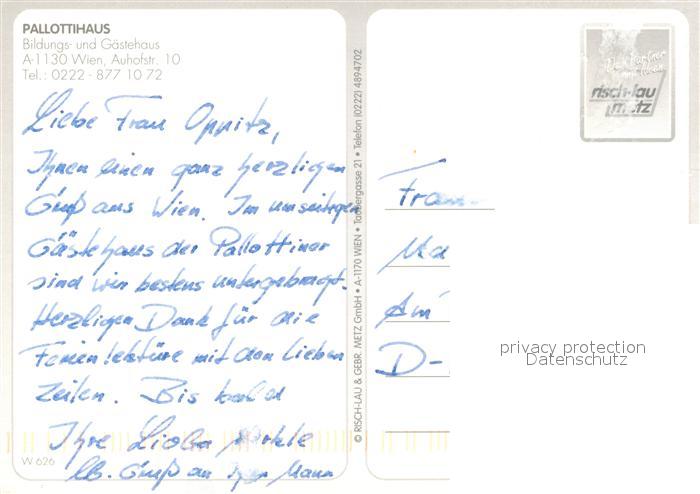 PALLOTTIHAUS
Bildungs- und Gästehaus
A-1130 Wien, Auhofstr. 10
Tel.: 0222 - 877 10 72
Liebe Frau Oppitz,
Ihnen einen ganz herzlichen
Gruß aus Wien. Im umseitigen
Gästehaus der Pallottiner
sind wir bestens untergebracht.
Herzlichen Dank für die
Ferienlektüre mit den lieben
Zeilen. Bis bald
Ihre
lb. Gruß an Mann
W 626
© RISCH-LAU & GEBR. METZ GmbH • A-1170 WIEN • Taubergasse 21 • Telefon (0222) 4894702
risch-lau
metz
Frau
Ma
Am
D-
privacy protection
Datenschutz